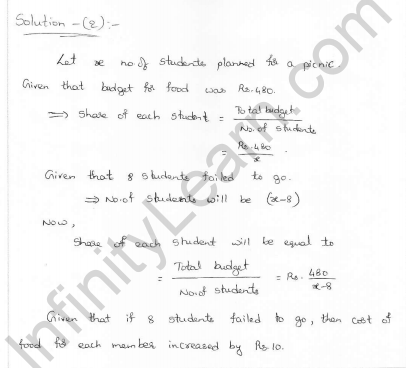 Solution - (2):-
Let x no.of students planned for a picnic.
Given that budget for food was Rs.480.
=> Share of each student = Total budget / No. of students
= Rs.480 / x .
Given that 8 students failed to go.
=> No.of students will be (x-8)
Now,
Share of each student will be equal to
= Total budget / No.of students = Rs. 480 / x-8
Given that if 8 students failed to go, then cost of
food for each member increased by Rs.10.
InfinityLearn.com